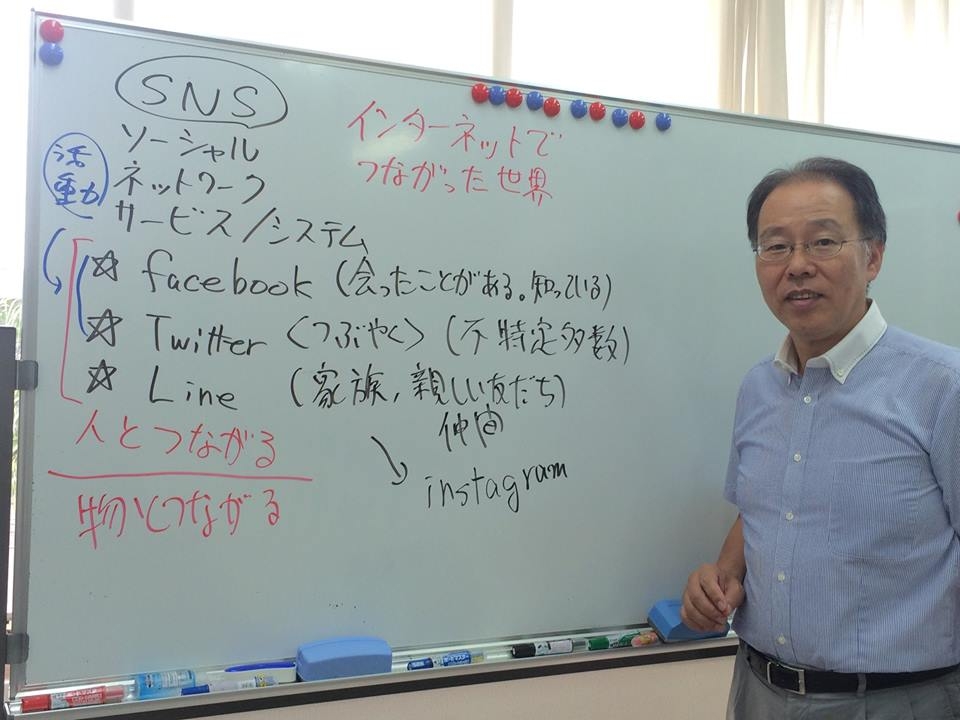 SNS
ソーシャル
ネットワーク
サービス/システム
活動
インターネットで
つながった世界
☆ facebook (会ったことがある。知っている)
☆ Twitter <つぶやく> (不特定多数)
☆ Line (家族, 親しい友だち)
仲間
instagram
人とつながる
物とつながる